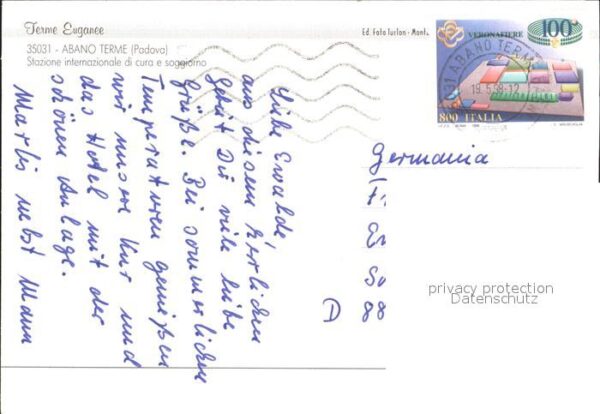 Terme Euganee
35031 - ABANO TERME (Padova)
Stazione internazionale di cura e soggiorno
Ed. Foto Turlon - Mont.
VERONAFIERE
100
800 ITALIA
ABANO TERME
19.5.98-12
Liebe Ewalde,
aus diesem herrlichen
Gebiet Dir viele liebe
Grüße. Bei sommerlichen
Temperaturen genießen
wir unsere Kur und
das Hotel mit der
schönen Anlage.
Marlis nebst Mann
Germania
D 88
privacy protection
Datenschutz